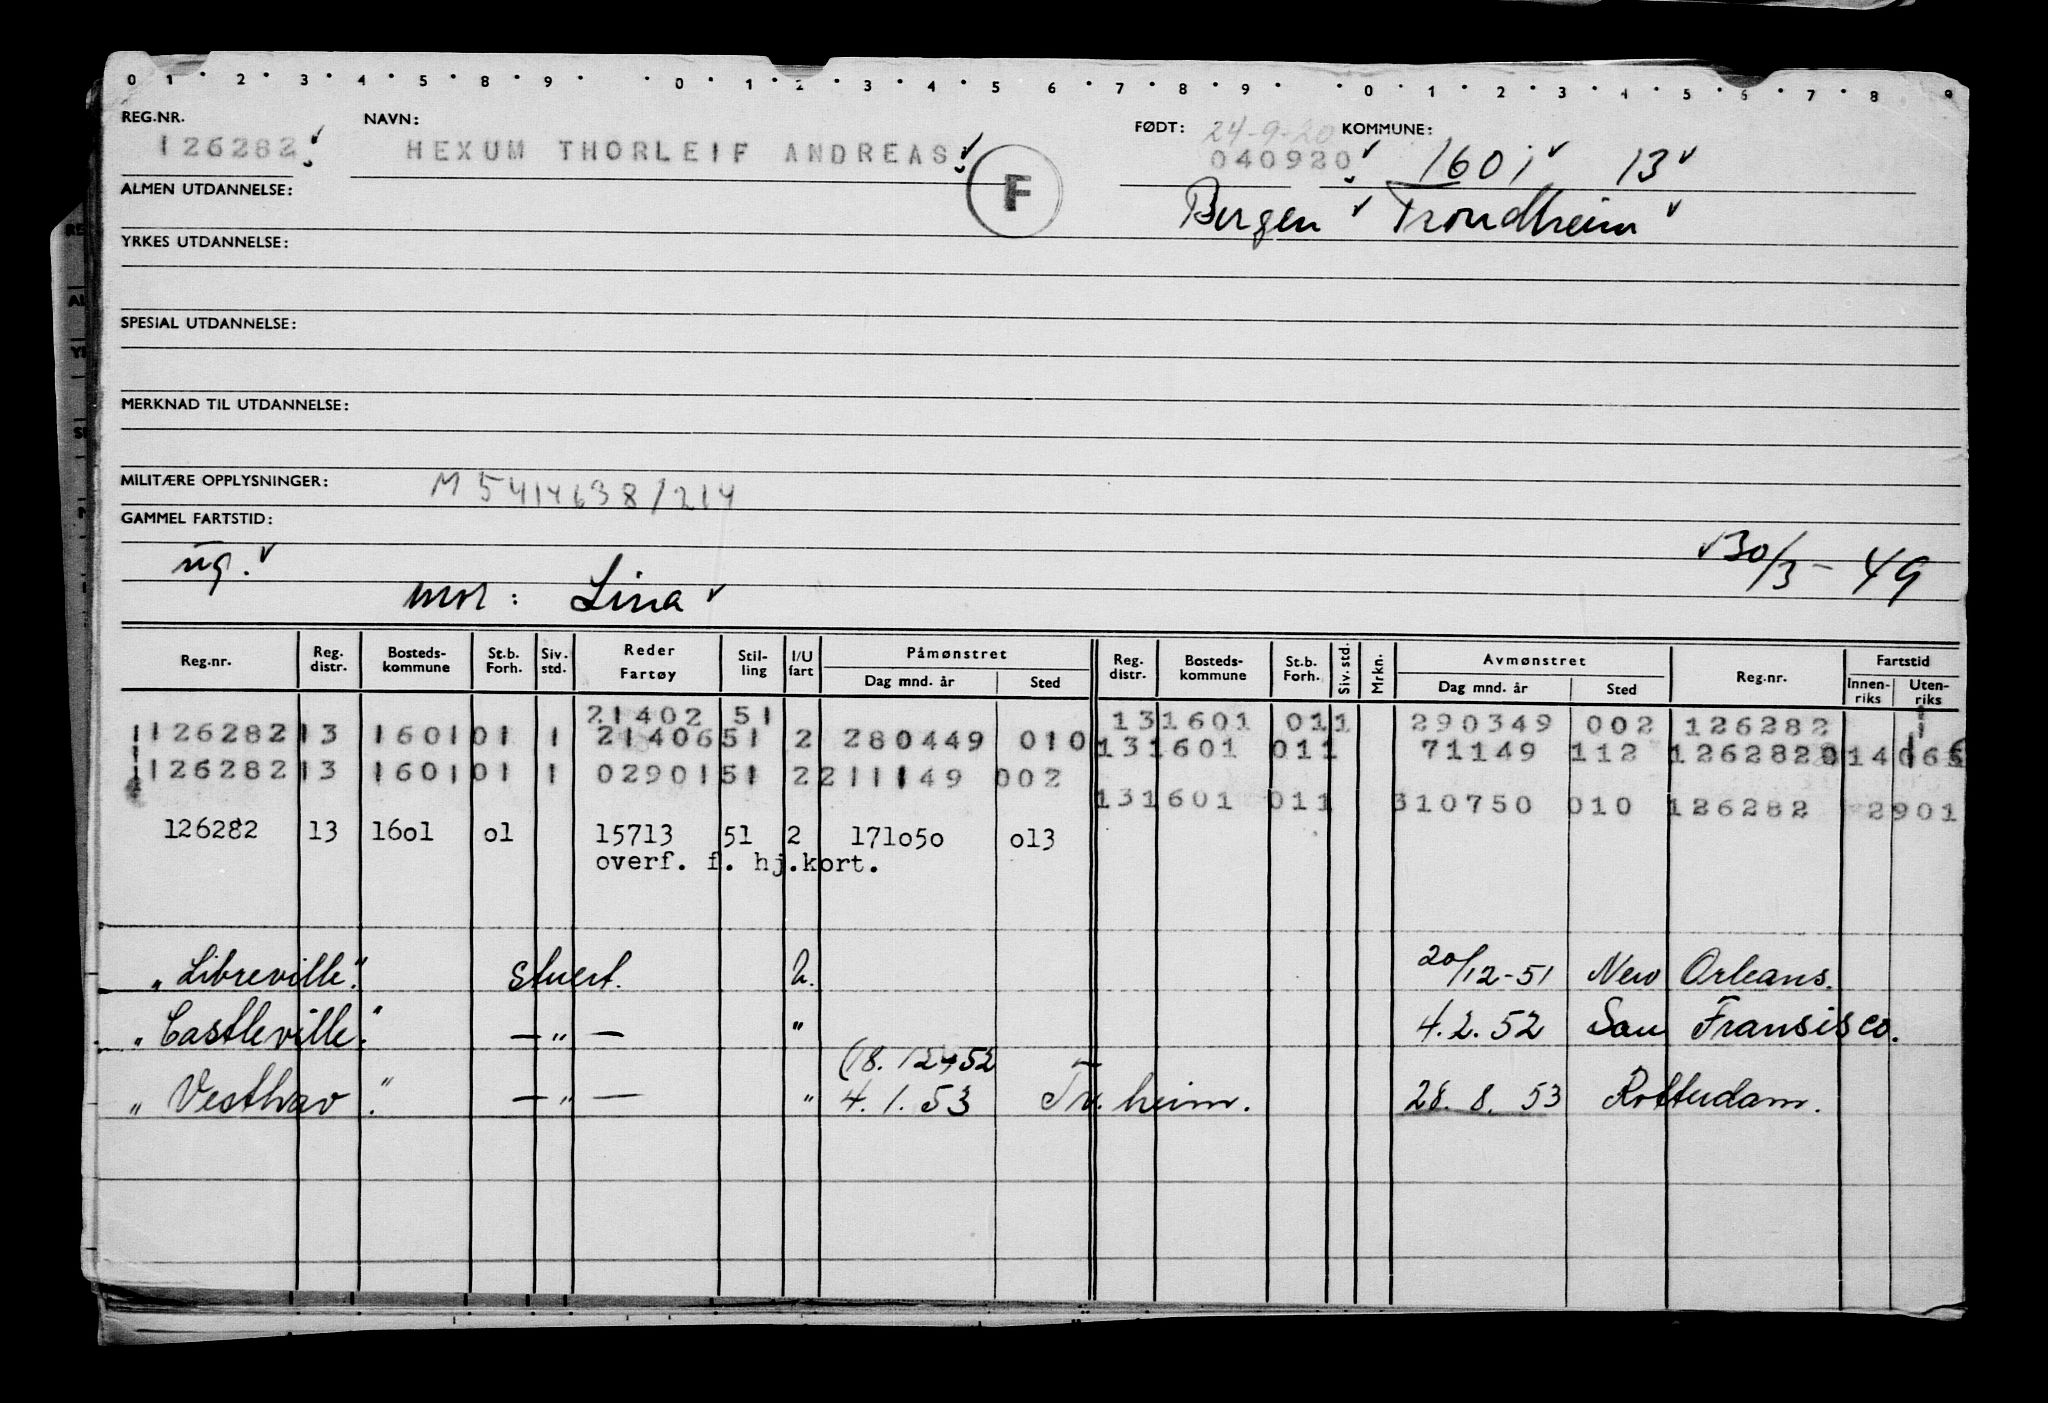 0 1 2 3 4 5 8 9 0 1 2 3 4 5 6 7 8 9 0 1 2 3 4 5 6 7 8 9
REG.NR. NAVN: FØDT: 24-9-20 KOMMUNE:
126282 HEXUM THORLEIF ANDREAS 040920 1601 13
F
ALMEN UTDANNELSE: Bergen Trondheim
YRKES UTDANNELSE:
SPESIAL UTDANNELSE:
MERKNAD TIL UTDANNELSE:
MILITÆRE OPPLYSNINGER: M 5414638/214
GAMMEL FARTSTID:
ug. 30/3-49
mor: Lina
Reg.nr. Reg. distr. Bosteds-kommune St.b. Forh. Siv. std. Reder Fartøy Stil-ling I/U fart Påmønstret Dag mnd. år Sted Reg. distr. Bosteds-kommune St.b. Forh. Siv.std. Mrkn. Avmønstret Dag mnd. år Sted Reg.nr. Fartstid Innen-riks Uten-riks
21402 51 131601 011 290349 002 126282
126282 13 1601 01 1 21406 51 2 280449 010 131601 011 71149 112 126282
126282 13 1601 01 1 02901 51 2 211149 002
131601 011 310750 010 126282 2901
126282 13 16o1 o1 15713 51 2 171o5o o13
overf. f. hj.kort.
"Libreville". stuert. U. 20/12-51 New Orleans.
"Castleville". — " — " 4.2.52 San Fransisco.
(18.12-52
"Vesthav". — " — " 4.1.53 Tr.heim. 28.8.53 Rotterdam.